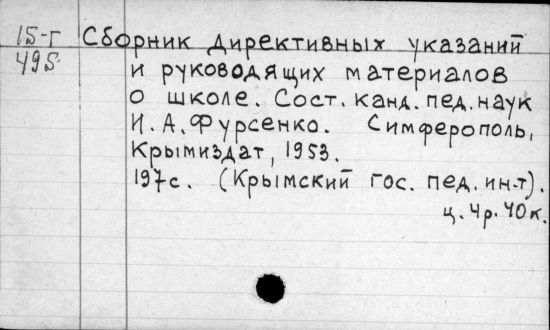 15-г Сборник директивных указаний
495 и руководящих материалов
о школе. Сост. канд. пед. наук
И. А. Фурсенко. Симферополь,
Крымиздат, 1953.
197с. (Крымский гос. пед. ин-т).
ц. 4р. 40к.